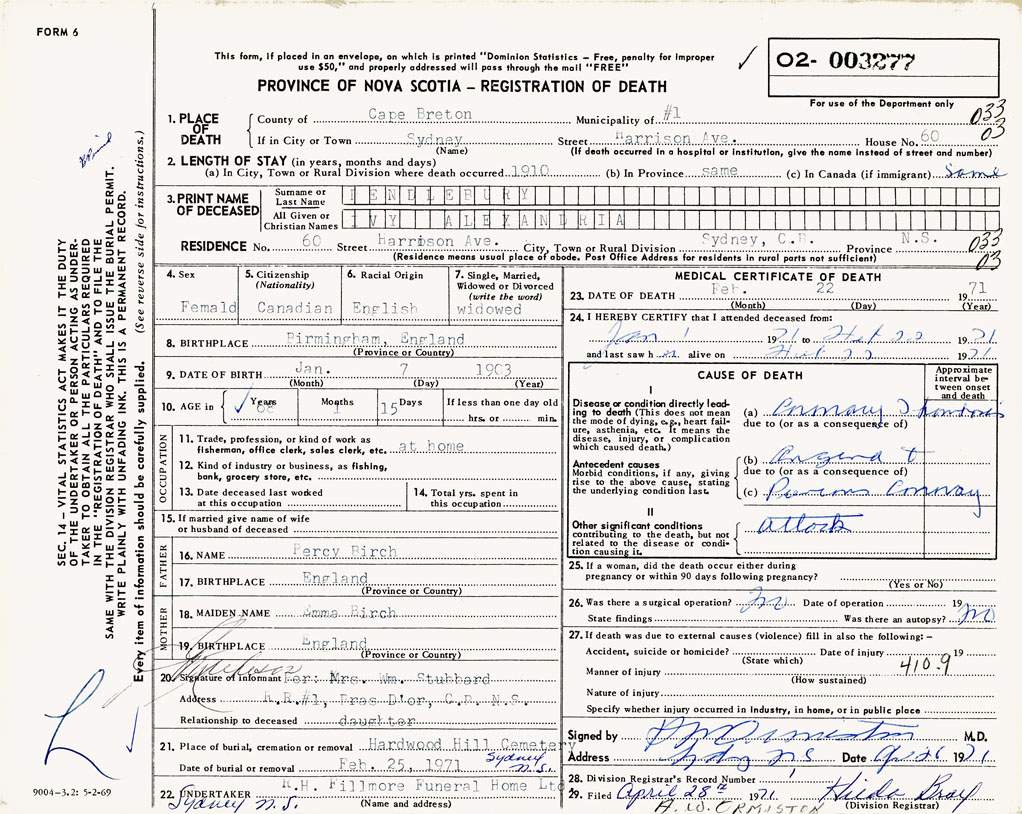 FORM 6
This form, if placed in an envelope, on which is printed "Dominion Statistics – Free, penalty for improper
use $50," and properly addressed will pass through the mail "FREE"
02- 003277
PROVINCE OF NOVA SCOTIA – REGISTRATION OF DEATH
For use of the Department only
1. PLACE OF DEATH
County of Cape Breton Municipality of #1 033
If in City or Town Sydney Street Harrison Ave. House No. 60 03
(Name) (If death occurred in a hospital or institution, give the name instead of street and number)
2. LENGTH OF STAY (in years, months and days)
(a) In City, Town or Rural Division where death occurred 1910 (b) In Province same (c) In Canada (if immigrant) Same
3. PRINT NAME OF DECEASED
Surname or Last Name PENDLEBURY
All Given or Christian Names IVY ALEXANDRIA
RESIDENCE No. 60 Street Harrison Ave. City, Town or Rural Division Sydney, C.B. Province N.S. 033
(Residence means usual place of abode. Post Office Address for residents in rural parts not sufficient) 03
4. Sex Femald
5. Citizenship (Nationality) Canadian
6. Racial Origin English
7. Single, Married, Widowed or Divorced (write the word) widowed
8. BIRTHPLACE Birmingham, England
(Province or Country)
9. DATE OF BIRTH Jan. 7 1903
(Month) (Day) (Year)
10. AGE in Years 68 Months 1 Days 15 If less than one day old
hrs. or min.
OCCUPATION
11. Trade, profession, or kind of work as
fisherman, office clerk, sales clerk, etc. at home
12. Kind of industry or business, as fishing,
bank, grocery store, etc.
13. Date deceased last worked
at this occupation
14. Total yrs. spent in
this occupation
15. If married give name of wife
or husband of deceased
FATHER
16. NAME Percy Birch
17. BIRTHPLACE England
(Province or Country)
MOTHER
18. MAIDEN NAME Emma Birch
19. BIRTHPLACE England
(Province or Country)
20. Signature of informant Per: Mrs. Wm. Stubbard
Address R.R.#1, Bras D'or, C.B. N.S.
Relationship to deceased daughter
21. Place of burial, cremation or removal Hardwood Hill Cemetery
Sydney N.S.
Date of burial or removal Feb. 25, 1971
22. UNDERTAKER R.H. Fillmore Funeral Home Ltd
Sydney N.S. (Name and address)
MEDICAL CERTIFICATE OF DEATH
23. DATE OF DEATH Feb. 22 1971
(Month) (Day) (Year)
24. I HEREBY CERTIFY that I attended deceased from:
Jan 1 1971 to Feb 22 1971
and last saw h er alive on Feb 22 1971
CAUSE OF DEATH
Approximate interval between onset and death
I
Disease or condition directly leading to death (This does not mean the mode of dying, e.g., heart failure, asthenia, etc. It means the disease, injury, or complication which caused death.)
(a) Coronary Thrombosis
due to (or as a consequence of)
Antecedent causes
Morbid conditions, if any, giving rise to the above cause, stating the underlying condition last.
(b) Angina &
due to (or as a consequence of)
(c) Previous Coronary
II
Other significant conditions contributing to the death, but not related to the disease or condition causing it.
attack
25. If a woman, did the death occur either during
pregnancy or within 90 days following pregnancy?
(Yes or No)
26. Was there a surgical operation? No Date of operation 19
State findings Was there an autopsy? No
27. If death was due to external causes (violence) fill in also the following: –
Accident, suicide or homicide? Date of injury 19
(State which)
Manner of injury 410.9
(How sustained)
Nature of injury
Specify whether injury occurred in industry, in home, or in public place
Signed by Ormiston M.D.
Address Sydney NS Date Apr 26 1971
28. Division Registrar's Record Number
29. Filed April 28th 1971 Hilda Bray
A. W. ORMISTON (Division Registrar)
SEC. 14 – VITAL STATISTICS ACT MAKES IT THE DUTY
OF THE UNDERTAKER OR PERSON ACTING AS UNDER-
TAKER TO OBTAIN ALL THE PARTICULARS REQUIRED
IN THE "REGISTRATION OF DEATH" AND TO FILE THE
SAME WITH THE DIVISION REGISTRAR WHO SHALL ISSUE THE BURIAL PERMIT.
WRITE PLAINLY WITH UNFADING INK. THIS IS A PERMANENT RECORD.
Every item of information should be carefully supplied. (See reverse side for instructions.)
9004–3.2: 5-2-69